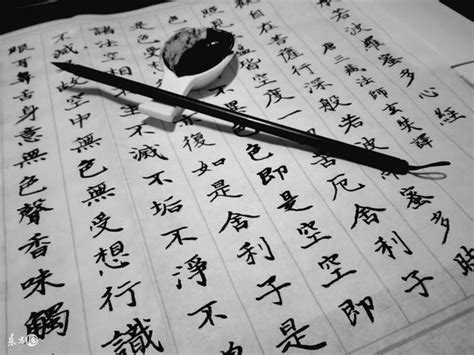 若波羅蜜多心經
唐三藏法師玄奘譯
自在菩薩行深般若波蜜多時
見皆空度一切苦厄舍利子
色即是空空即
是色受復如是舍利子是
諸法空相不生不滅不垢不淨不
不減故空中無色無受想行識
眼耳鼻舌身意無色聲香味觸